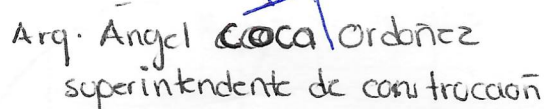 Arq. Ángel coca Ordoñez
superintendente de construcción